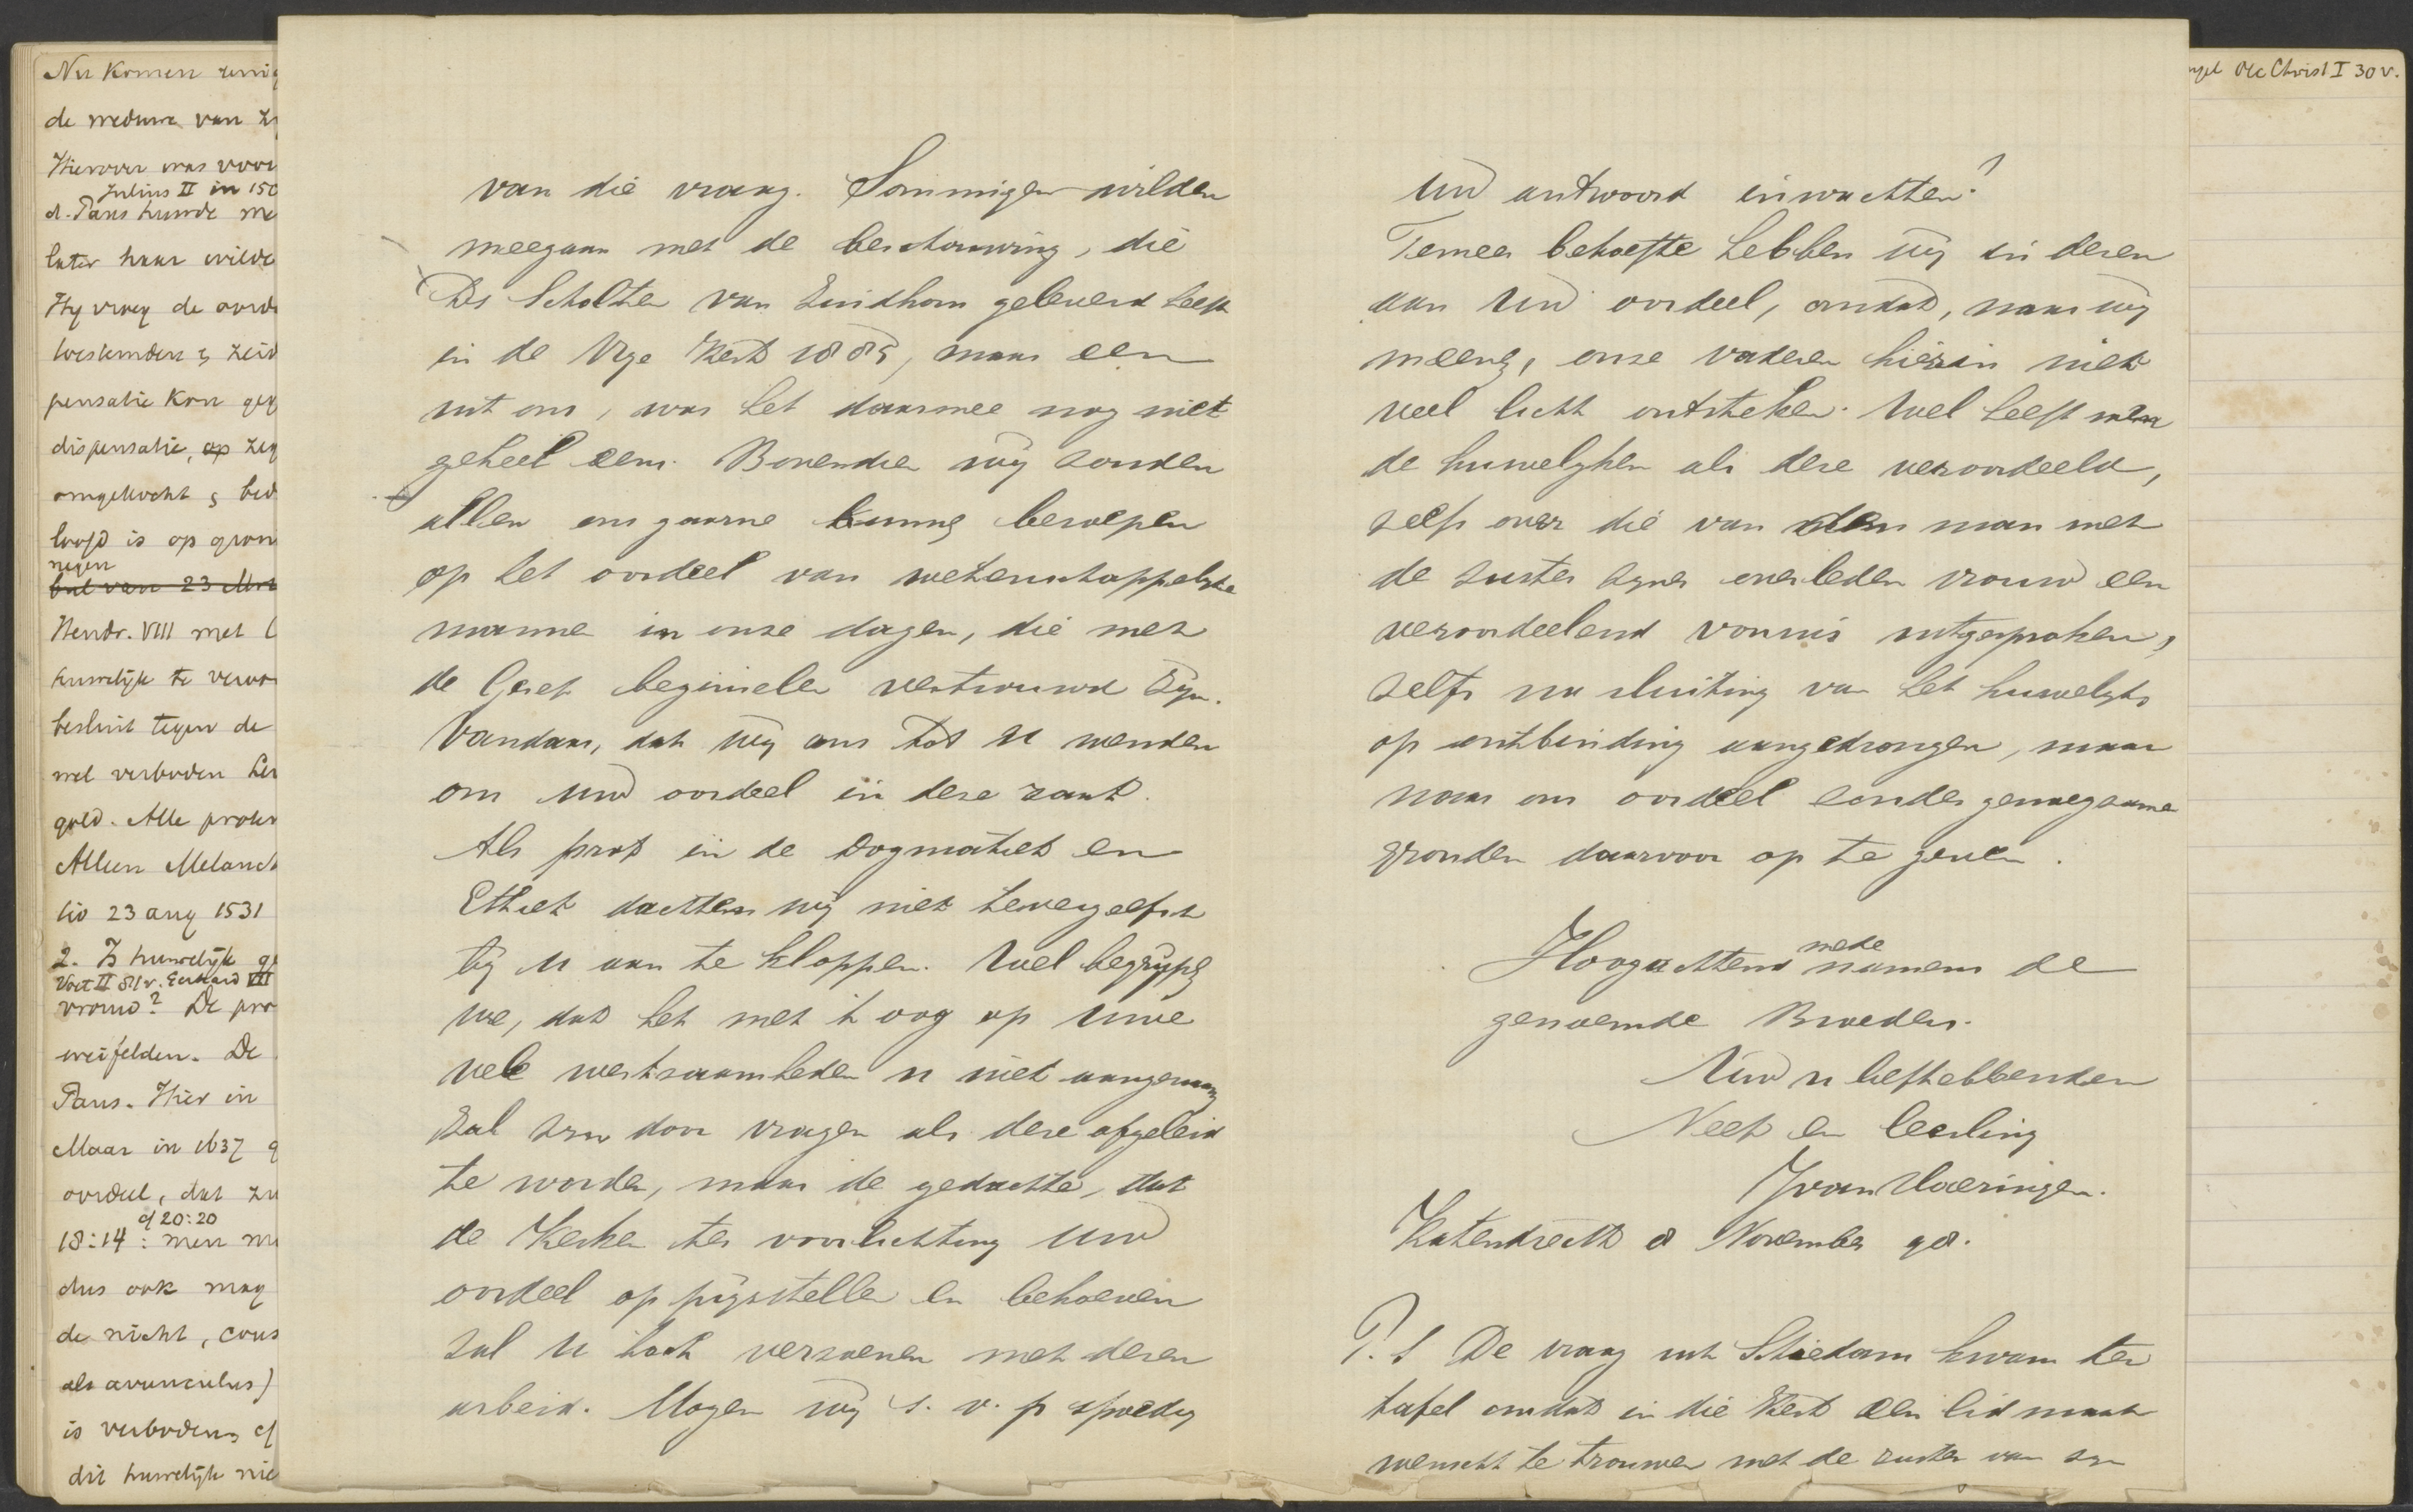 Nu komen
de weduwe van
Hierover was voor
Julius II in 150
d. Paus hunde me
later haar wilde
Hy vroeg de oorde
pensatie kon geg
dispensatie, op zeg
omgekocht & bed
loofd is op gron
negen
bul van 23
Hendr. VIII met
huwelijk te verwo
besluit tegen de
wel verboden
geld. Alle
Alleen Melanch
lio 23 aug 1531
2. Is huwelijk ge
Voet II 811 v. Gerhard VII
vrouw? De pro
weifelden. De
Paus. Hier in
Maar in 1637 g
oordeel, dat
cf 20:20
18:14 : men
dus ook mag
de nicht,
als avunculus)
is verboden, cf
dit huwelijk nie
van die vraag. Sommigen wilden
meegaan met de beschouwing, die
Ds Scholten van Eindhoven geleverd heeft
in de Vrije Kerk 1885, maar een
uit ons, was het daarmee nog niet
geheel eens. Bovendien wij zouden
allen ons gaarne kunne beroepen
op het oordeel van wetenschappelijke
mannen in onze dagen, die met
de Geref beginselen vertrouwd zijn.
Vandaar, dat wij ons tot U wenden
om Uw oordeel in deze zaak.
Als prof in de Dogmatiek en
Ethiek dachten wij niet tevergeefsch
bij U aan te kloppen. Wel begrijpe
we, dat het met 't oog op Uwe
vele werkzaamheden U niet aangenaam
zal zijn door vragen als deze afgeleid
te worden, maar de gedachte, dat
de Kerken ter voorlichting Uw
oordeel op prijsstellen en behoeven
zal U toch verzoenen met dezen
arbeid. Mogen wij s. v. p spoedig
Uw antwoord inwachten?
Temeer behoefte hebben wij in dezen
aan Uw oordeel, omdat, naar wij
meene, onze vaderen hierin niet
veel licht ontsteken. Wel heeft men
de huwelijken als deze veroordeeld,
zelfs over die van den man met
de zuster zijner overleden vrouw een
veroordeelend vonnis uitgesproken,
zelfs na sluiting van het huwelijks
op ontbinding aangedrongen, maar
naar ons oordeel zonder genoegzame
gronden daarvoor op te geven.
Hoogachtend mede namens de
genoemde Broeders.
Uw U liefhebbenden
Neef en leerling
J van Haeringen.
Katendrecht 8 November 98.
P. S De vraag uit Schiedam kwam ter
tafel omdat in die Kerk een lidmaat
wenscht te trouwen met de zuster van zijn
Chrisl I 30 v.